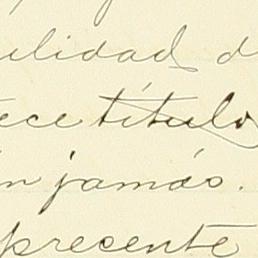 ulidad d
ece título
n jamás.
precente